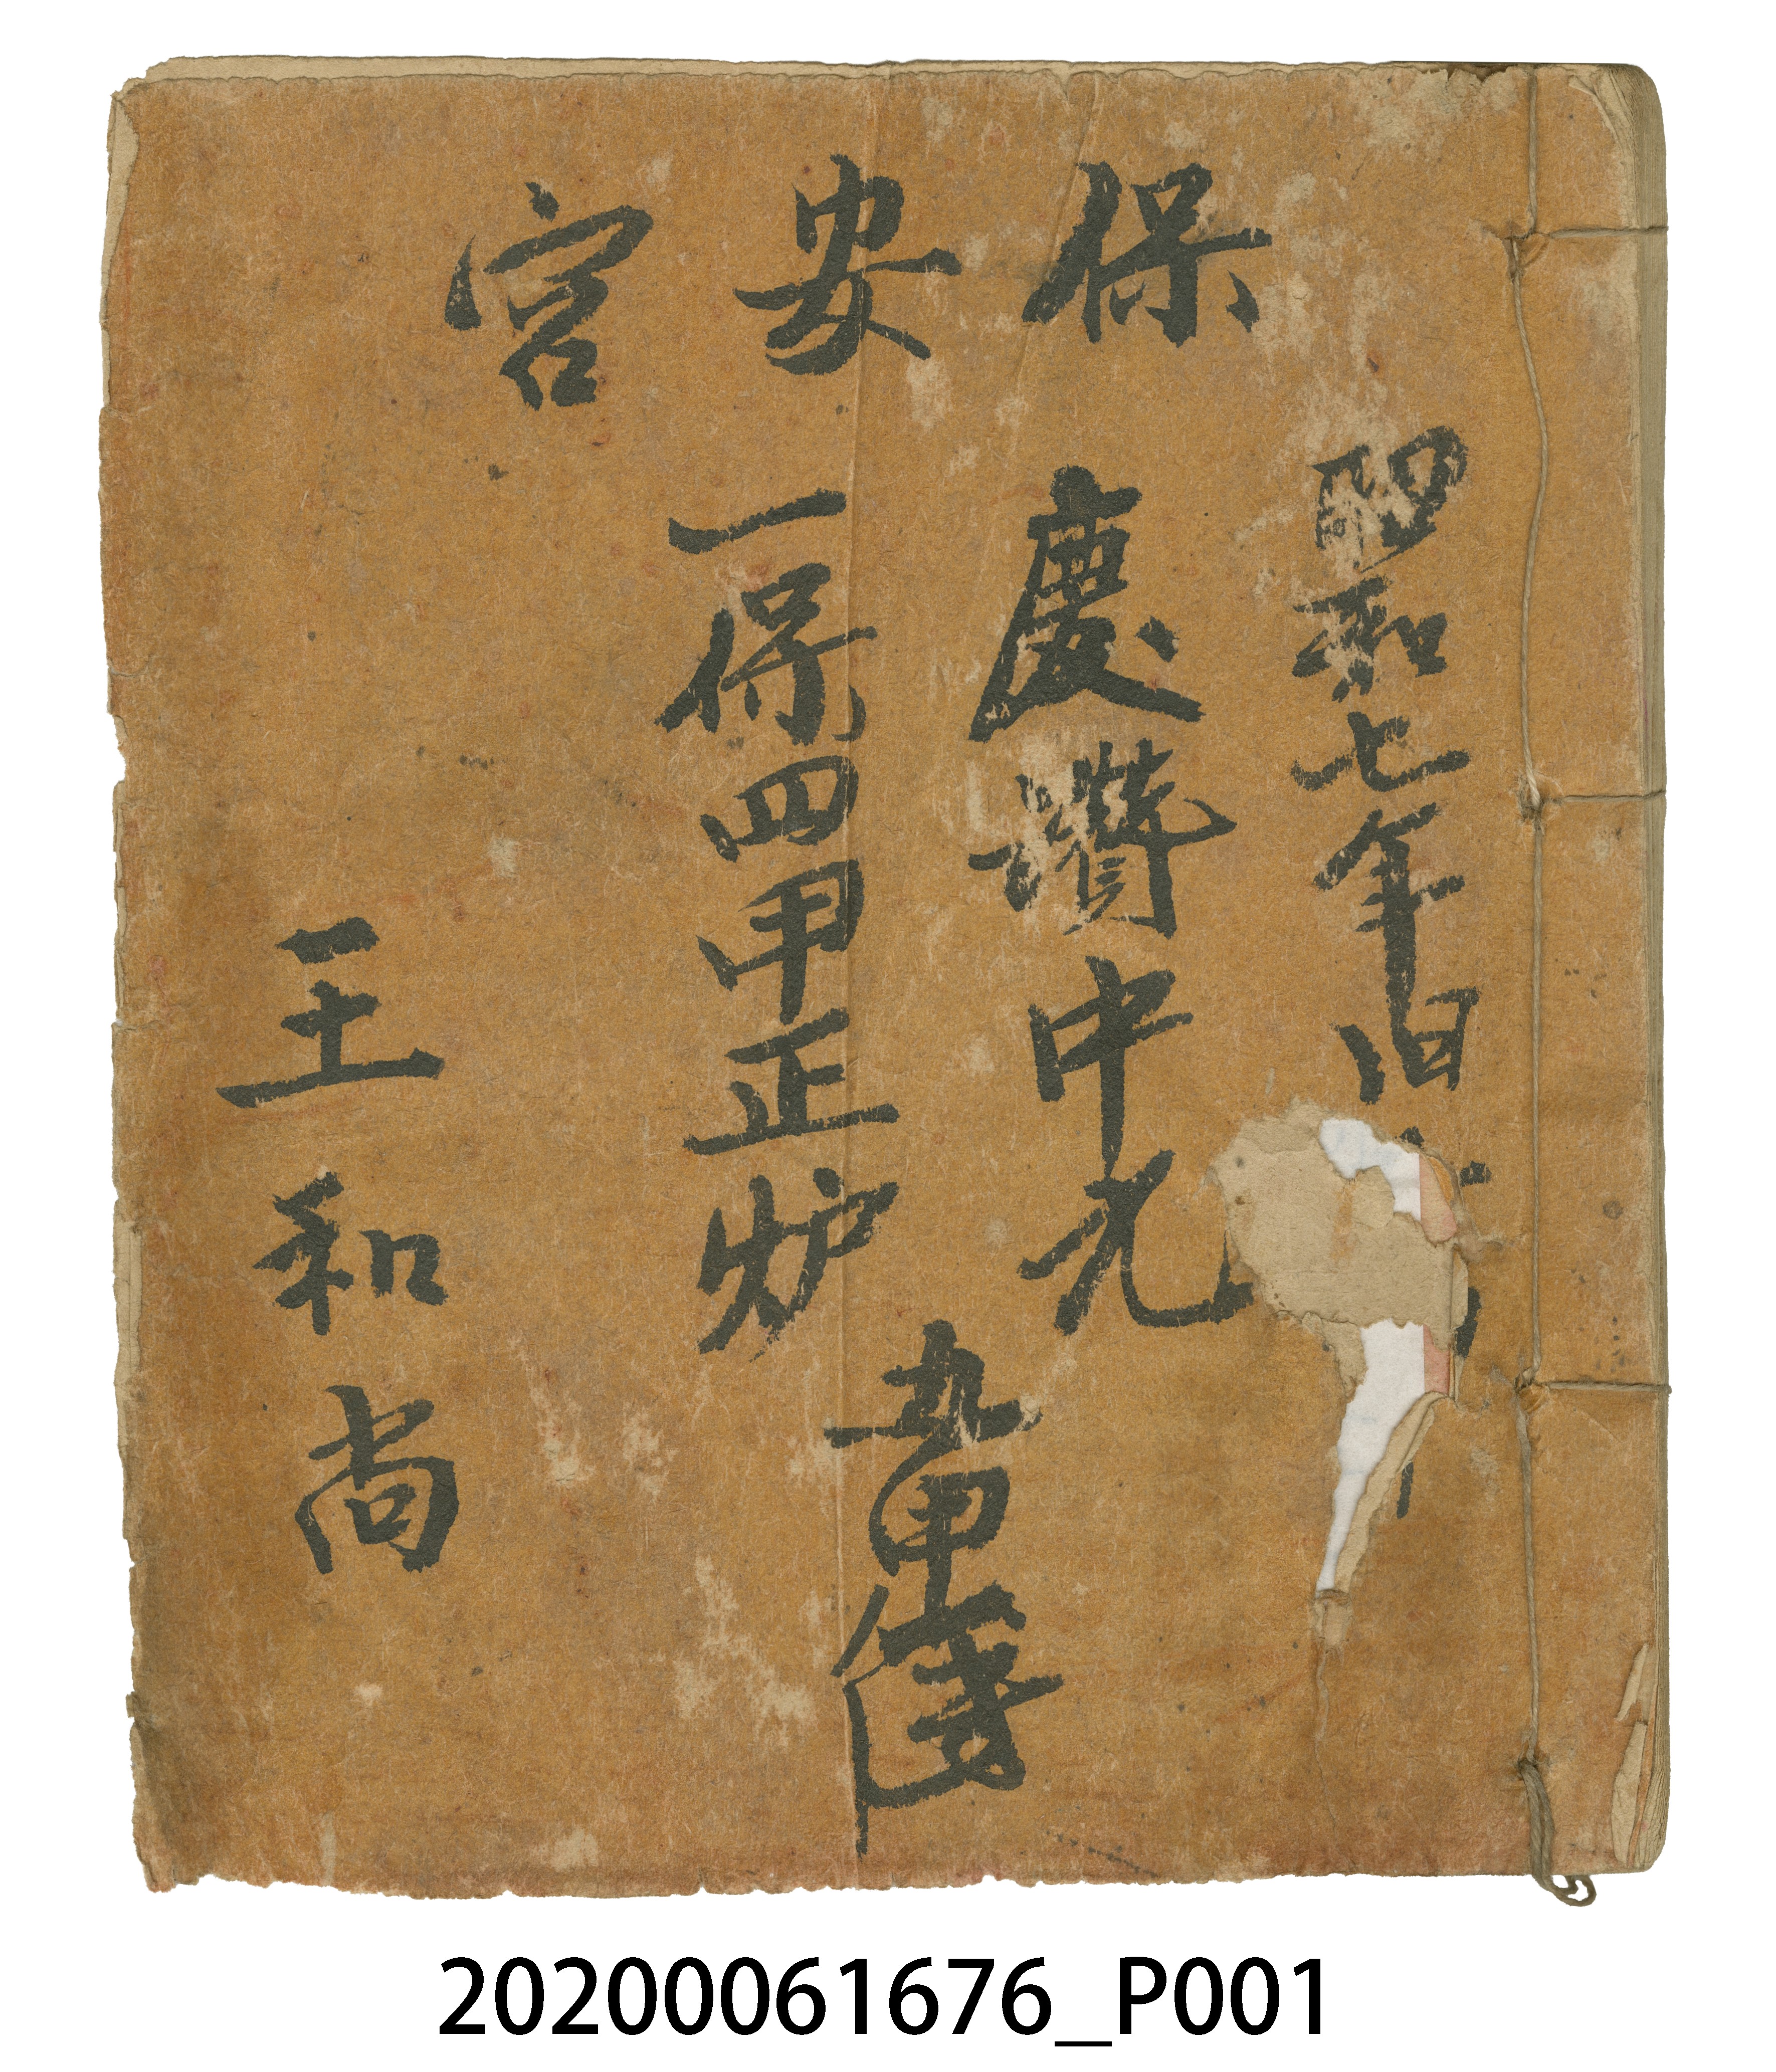 保安宮
昭和七年旧
慶讚中元
一保四甲正炉
王和尚
20200061676_P001